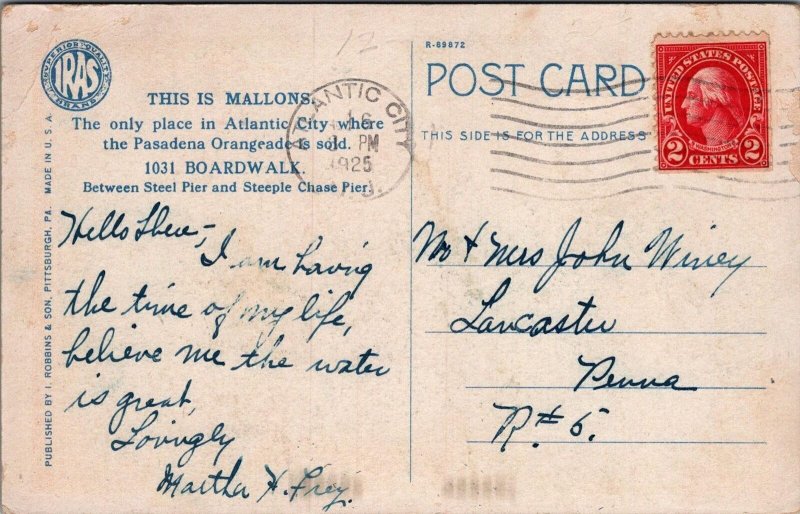 12
R-89872
SUPERIOR QUALITY
IRAS
BRAND
THIS IS MALLONS.
The only place in Atlantic City where
the Pasadena Orangeade is sold.
1031 BOARDWALK.
Between Steel Pier and Steeple Chase Pier.
ATLANTIC CITY
16
PM
1925
N.J.
POST CARD
THIS SIDE IS FOR THE ADDRESS
UNITED STATES POSTAGE
WASHINGTON
2 CENTS 2
PUBLISHED BY I. ROBBINS & SON, PITTSBURGH, PA. MADE IN U.S.A.
Hello There -,
I am having
the time of my life,
believe me the water
is great,
Lovingly
Martha H. Frey.
Mr & Mrs John Winey
Lancaster
Penna
R# 5.